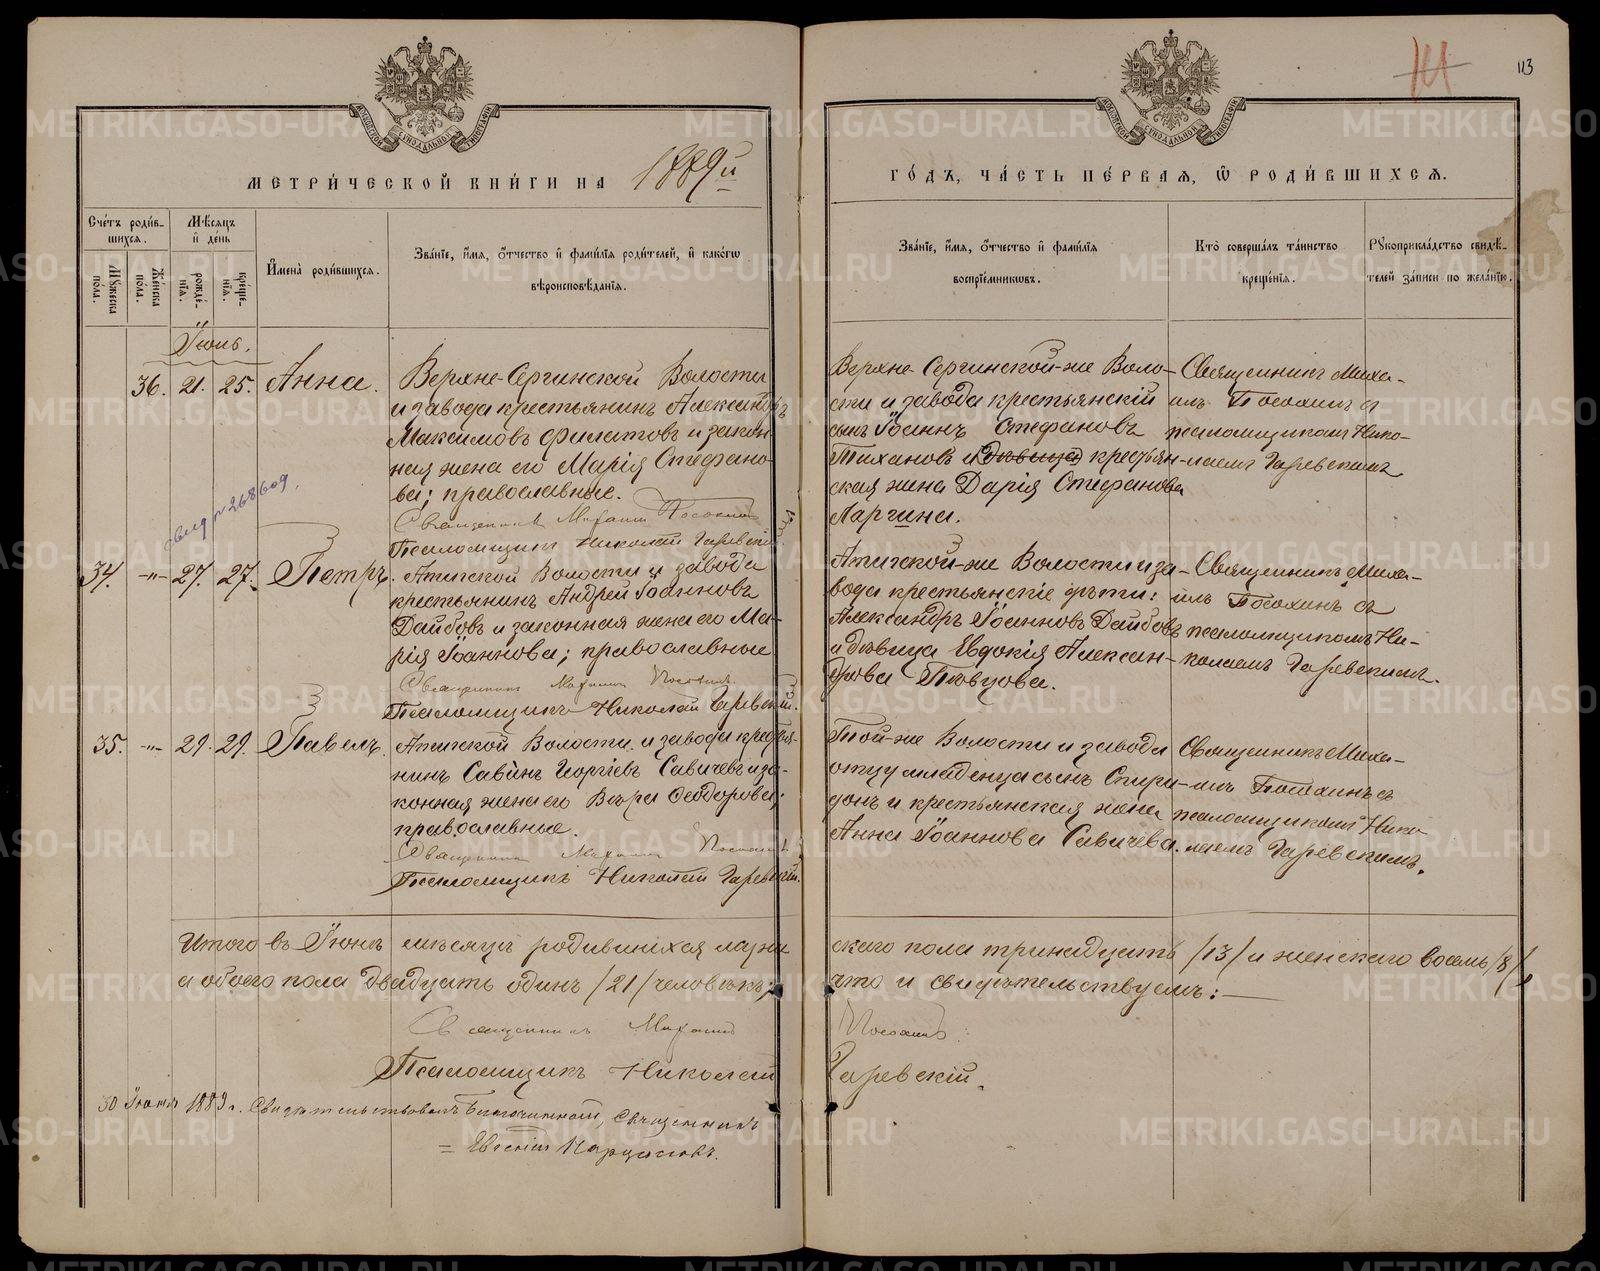 МЕТРИ́ЧЕСКОЙ КНИ́ГИ НА 1889й
Сче́тъ роди́в-
шихся.
Му́жеска по́ла.
Же́нска по́ла.
Мѣ́сяцъ и҆ де́нь
рожде́-нїя.
креще́-нїя.
И҆мена̀ роди́вшихся.
Зва́нїе, и҆́мя, о҆́тчество и҆ фами́лїя роди́телей, и҆ како́гѡ
вѣроисповѣ́данїя.
Іюнь.
36. 21. 25. Анна.
Верхне-Сергинской Волости
и завода крестьянинъ Александръ
Максимовъ Филатовъ и закон-
ная жена его Марія Стефано-
ва; православные.
Священникъ Михаилъ Посохинъ
Псаломщикъ Николай Гаревскій
свид № 268609.
34. -"- 27. 27. Петръ.
Атигской Волости и завода
крестьянинъ Андрей Іоанновъ
Даибовъ и законная жена его Ма-
рія Іоаннова; православные
Священникъ Михаилъ Посохинъ.
Псаломщикъ Николай Гаревскій.
35. -"- 29. 29. Павелъ.
Атигской Волости и завода крестья-
нинъ Савинъ Георгіевъ Савичевъ и за-
конная жена его Вѣра Ѳеодорова;
православные.
Священникъ Михаилъ Посохинъ
Псаломщикъ Николай Гаревскій.
Итого въ Іюнѣ мѣсяцѣ родившихся муже
а обоего пола двадцать одинъ /21/ человѣкъ,
Священникъ Михаилъ
Псаломщикъ Николай
30 Іюня 1889 г. Свидѣтельствовалъ Благочинный, Священникъ
= Евгеній
113
ГО́ДЪ, ЧА́СТЬ ПЕ́РВАЯ, Ѽ РОДИ́ВШИХСЯ.
Зва́нїе, и҆́мя, о҆́тчество и҆ фами́лїя
воспрїе́мникѡвъ.
Кто̀ соверша́лъ та́инство
креще́нїя.
Рꙋкоприкла́дство свидѣ́-
телей за́писи по жела́нїю.
Верхне-Сергинской-же Воло-
сти и завода крестьянскій
сынъ Іоаннъ Стефановъ
Тихановъ и дѣвица крестьян-
ская жена Дарія Стефанова
Ларгина.
Священникъ Миха-
илъ Посохинъ съ
псаломщикомъ Нико-
лаемъ Гаревскимъ
Атигской-же Волости и за-
вода крестьянскіе дѣти:
Александръ Іоанновъ Даибовъ
и дѣвица Евдокія Алексан-
дрова Пѣвцова.
Священникъ Миха-
илъ Посохинъ съ
псаломщикомъ Ни-
колаемъ Гаревскимъ.
Той-же Волости и завода
отцу младенца сынъ Спири-
донъ и крестьянская жена
Анна Іоаннова Савичева.
Священникъ Миха-
илъ Посохинъ съ
псаломщикомъ Нико
лаемъ Гаревскимъ.
скаго пола тринадцать /13/ и женскаго восемь /8/
что и свидѣтельствуемъ:—
Посохинъ.
Гаревскій.
METRIKI.GASO-URAL.RU